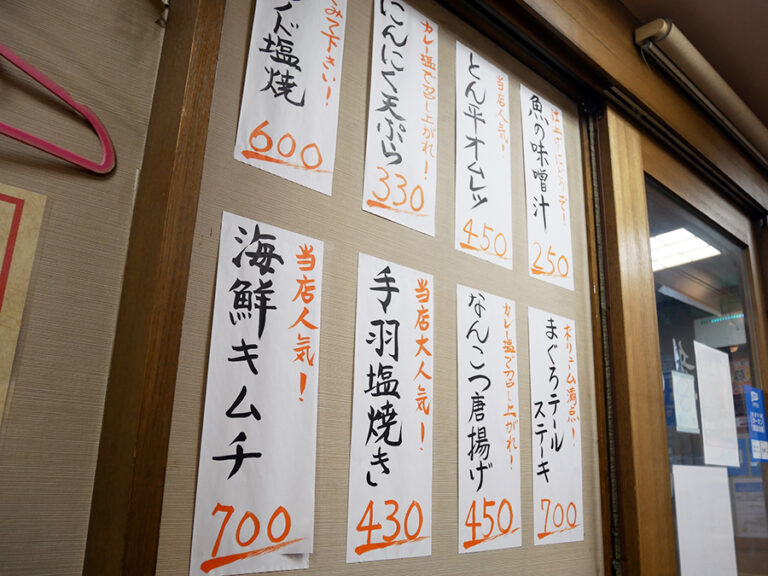 みて下さい！
イド塩焼
600
カレー塩で召し上がれ！
にんにく天ぷら
330
当店人気！
とん平オムレツ
450
仕上げにどうぞ！
魚の味噌汁
250
当店人気！
海鮮キムチ
700
当店大人気！
手羽塩焼き
430
カレー塩で召し上がれ！
なんこつ唐揚げ
450
ボリューム満点！
まぐろテール
ステーキ
700